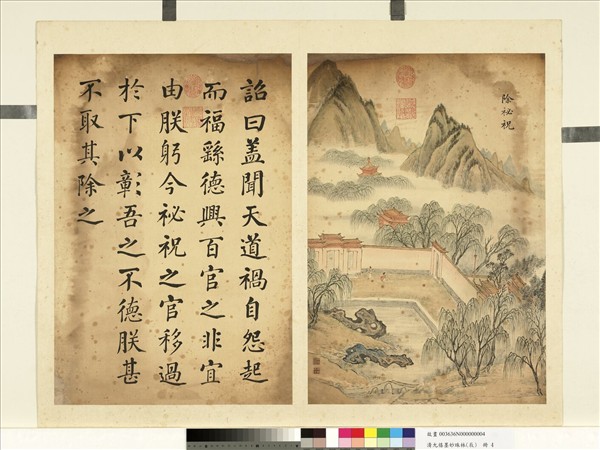 除祕祝
詔曰盖聞天道禍自怨起
而福繇德興百官之非宜
由朕躬今祕祝之官移過
於下以彰吾之不德朕甚
不取其除之
故畫 003636N000000004
清允禧墨妙珠林(辰) 冊 4